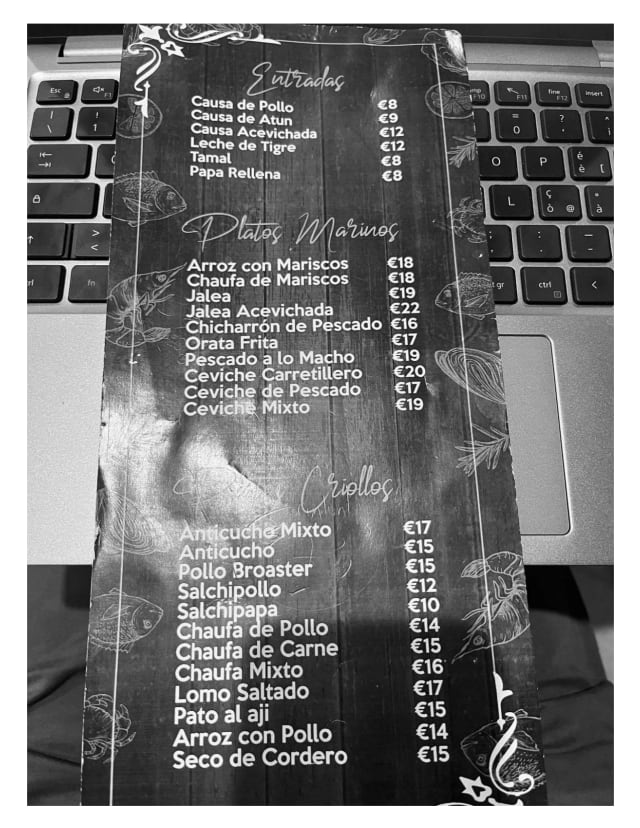 Entradas
Causa de Pollo €8
Causa de Atun €9
Causa Acevichada €12
Leche de Tigre €12
Tamal €8
Papa Rellena €8
Platos Marinos
Arroz con Mariscos €18
Chaufa de Mariscos €18
Jalea €19
Jalea Acevichada €22
Chicharrón de Pescado €16
Orata Frita €17
Pescado a lo Macho €19
Ceviche Carretillero €20
Ceviche de Pescado €17
Ceviche Mixto €19
Criollos
Anticucho Mixto €17
Anticucho €15
Pollo Broaster €15
Salchipollo €12
Salchipapa €10
Chaufa de Pollo €14
Chaufa de Carne €15
Chaufa Mixto €16
Lomo Saltado €17
Pato al aji €15
Arroz con Pollo €14
Seco de Cordero €15
Esc
F1
F10
F11
fine
F12
insert
!
1
=
0
?
O
P
é
è [
L
ç
ò @
°
à
>
<
fn
ctrl